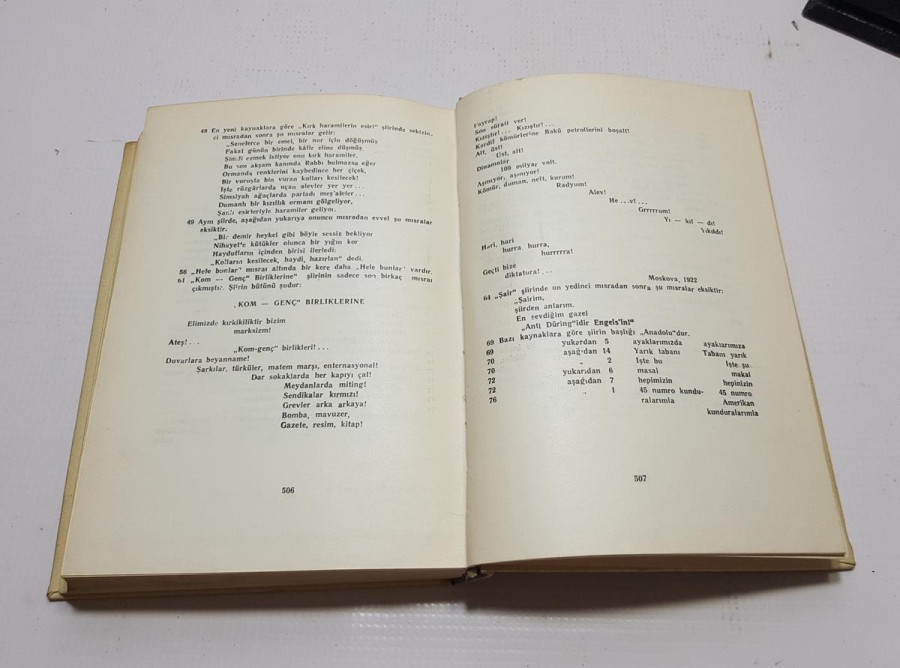 48 En yeni kaynaklara göre „Kırk haramilerin esiri" şiirinde sekizin-
ci mısradan sonra şu mısralar gelir:
„Senelerce bir emel, bir nur için döğüşmüş
Fakat günün birinde kâfir eline düşmüş,
Şimdi ezmek istiyor onu kırk haramiler,
Bu son akşam kanında Rabbı bulmazsa eğer
Ormanda renklerini kaybedince her çiçek,
Bir vuruşla bin vuran kolları kesilecek!
İşte rüzgârlarda uçan alevler yer yer...
Simsiyah ağaçlarda parladı meş'aleler...
Dumanlı bir kızıllık ormanı gölgeliyor,
Şanlı esirleriyle haramiler geliyor.
49 Aynı şiirde, aşağıdan yukarıya onuncu mısradan evvel şu mısralar
eksiktir.
„Bir demir heykel gibi böyle sessiz bekliyor
Nihayet'e kütükler olunca bir yığın kor
Haydutların içinden birisi ilerledi:
„Kolların kesilecek, haydi, hazırlan" dedi.
56 „Hele bunlar" mısraı altında bir kere daha „Hele bunlar" vardır.
61 „Kom — Genç Birliklerine" şiirinin sadece son birkaç mısraı
çıkmıştır. Şiirin bütünü şudur:
„KOM — GENÇ" BİRLİKLERİNE
Elimizde kırkikiliktir bizim
marksizm!
Ateş!...
„Kom-genç" birlikleri!...
Duvarlara beyanname!
Şarkılar, türküler, matem marşı, enternasyonal!
Dar sokaklarda her kapıyı çal!
Meydanlarda miting!
Sendikalar kırmızı!
Grevler arka arkaya!
Bomba, mavuzer,
Gazete, resim, kitap!
506
Fayrap!
Son sürati ver!
Kızıştır!... Kızıştır!...
Kardif kömürlerine Bakû petrollerini boşalt!
Alt, üst!
Üst, alt!
Dinamolar
100 milyar volt.
Aşınıyor, aşınıyor!
Kömür, duman, neft, kurum!
Radyum!
Alev!
He...v!...
Grrrrrum!
Yı — kıl — dı!
Yıkıldı!
Hari, hari
hurra, hurra,
hurrrrra!
Geçti bize
diktatura!...
Moskova, 1922
64 „Şair" şiirinde on yedinci mısradan sonra şu mısralar eksiktir:
„Şairim,
şiirden anlarım,
En sevdiğim gazel
„Anti Düring"idir Engels'in!"
69 Bazı kaynaklara göre şiirin başlığı „Anadolu"dur.
69 yukardan 5 ayaklarımızda ayaklarımıza
70 aşağıdan 14 Yarık tabanı Tabanı yarık
70 „ 2 İşte bu İşte şu
72 yukarıdan 6 masal makal
72 aşağıdan 7 hepimizin hepinizin
76 „ 1 45 numro kundu- 45 numro
ralarımla Amerikan
kunduralarımla
507